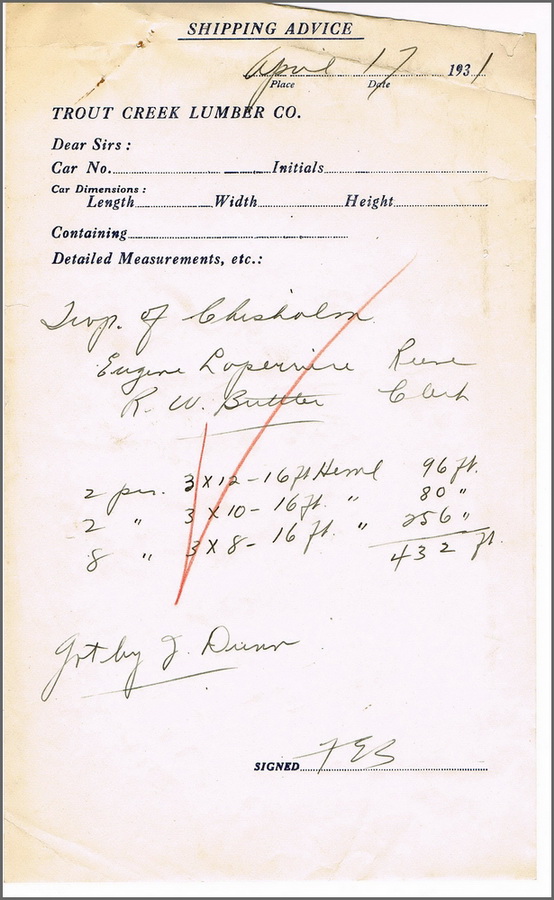 SHIPPING ADVICE
April 17 1931
Place Date
TROUT CREEK LUMBER CO.
Dear Sirs :
Car No. Initials
Car Dimensions :
Length Width Height
Containing
Detailed Measurements, etc.:
Twp. of Chisholm
Eugene Laperriere Reeve
R. W. Butter Clerk
2 pcs. 3 x 12 - 16 ft Heml 96 ft.
2 " 3 x 10 - 16 ft. " 80 "
8 " 3 x 8 - 16 ft. " 256 "
432 ft.
Got by J. Dunn
SIGNED